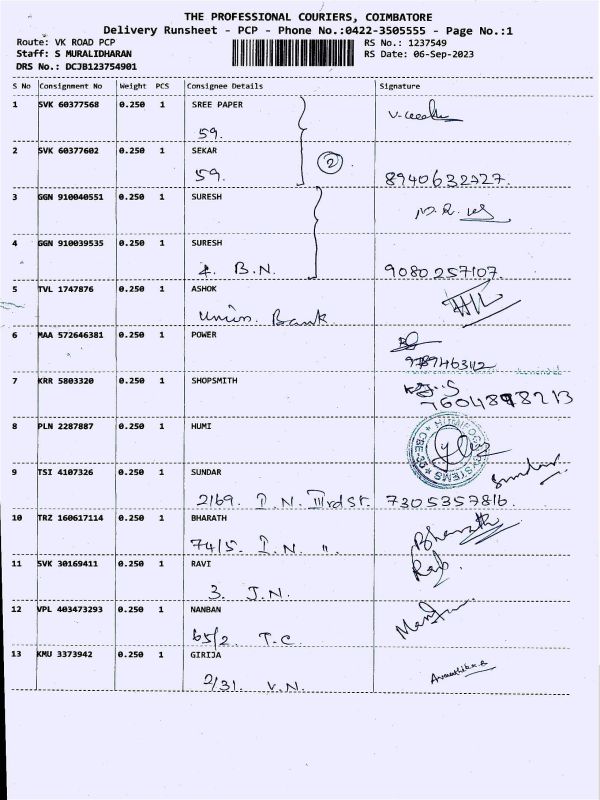 THE PROFESSIONAL COURIERS, COIMBATORE
Delivery Runsheet - PCP - Phone No.:0422-3505555 - Page No.:1
Route: VK ROAD PCP RS No.: 1237549
Staff: S MURALIDHARAN RS Date: 06-Sep-2023
DRS No.: DCJB123754901
S No Consignment No Weight PCS Consignee Details Signature
1 SVK 60377568 0.250 1 SREE PAPER
59.
2 SVK 60377602 0.250 1 SEKAR
2
59. 8940632727.
3 GGN 910040551 0.250 1 SURESH
4 GGN 910039535 0.250 1 SURESH
B.N. 9080257107.
5 TVL 1747876 0.250 1 ASHOK
Union Bank.
6 MAA 572646381 0.250 1 POWER
7 KRR 5803320 0.250 1 SHOPSMITH
8 PLN 2287887 0.250 1 HUMI
9 TSI 4107326 0.250 1 SUNDAR
Sundar
2/69. I.N. IIIrd St. 7305357816.
10 TRZ 160617114 0.250 1 BHARATH
Bharath
74/5. I.N. "
11 SVK 30169411 0.250 1 RAVI
3. J.N.
12 VPL 403473293 0.250 1 NANBAN
65/2 T.C.
13 KMU 3373942 0.250 1 GIRIJA
2/31. V.N.